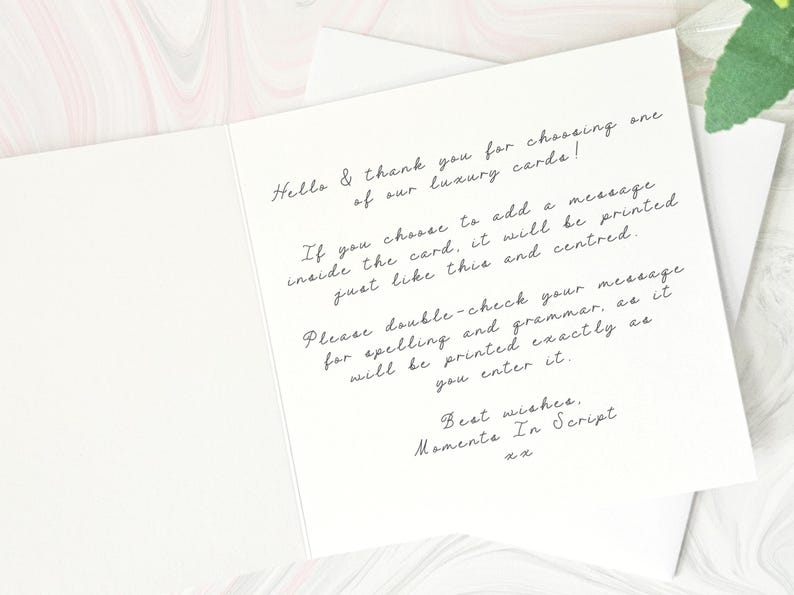 Hello & thank you for choosing one
of our luxury cards!
If you choose to add a message
inside the card, it will be printed
just like this and centred.
Please double-check your message
for spelling and grammar, as it
will be printed exactly as
you enter it.
Best wishes,
Moments In Script
xx